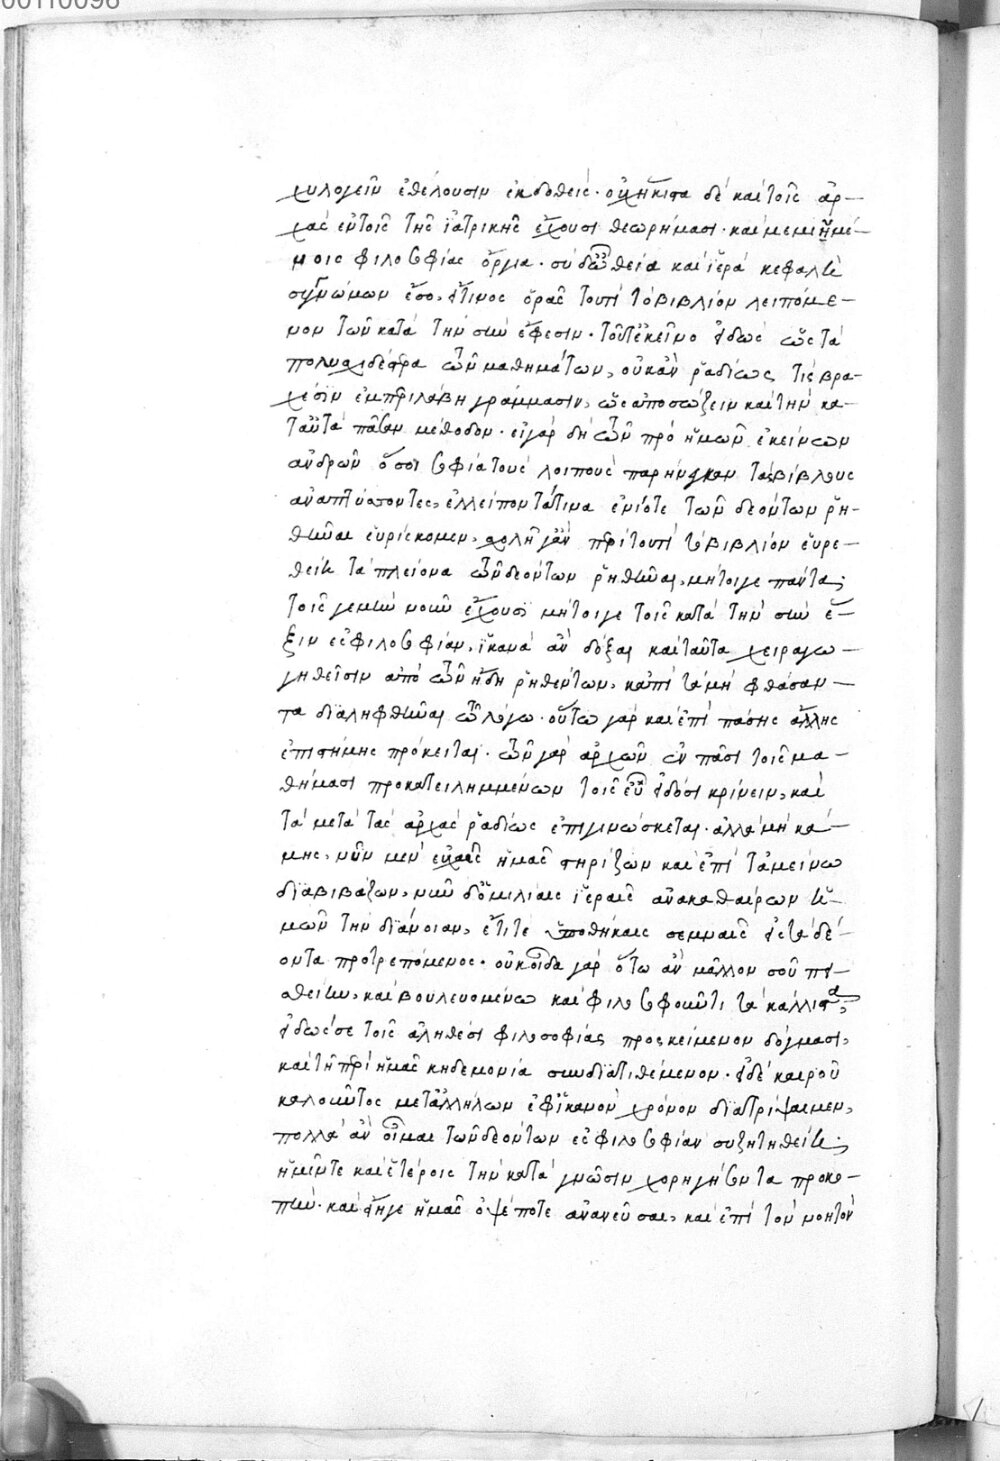 00110098
χυλογεῖν ἐθέλουσιν ἐκδοθείς· οὐχἥκιστα δὲ καὶ τοῖς ἀρ-
χὰς ἐν τοῖς τῆς ἰατρικῆς ἔχουσι θεωρήμασι· καὶ μεμυημέ-
νοις φιλοσοφίας ὄργια· σὺ δ ὦ θεία καὶ ἱερὰ κεφαλὴ
συγγνώμων ἔσο, εἴ τινος ὁρᾶς τουτὶ τὸ βιβλίον λειπόμε-
νον τῶν κατὰ τὴν σὴν ἔφεσιν· τοῦτ ἐκεῖνο εἰδὼς ὡς τὰ
πολυσχιδέστερα τῶν μαθημάτων, οὐκ ἂν ῥαδίως τις βρα-
χέσιν ἐμπεριλάβῃ γράμμασιν, ὡς ἀποσώζειν καὶ τὴν κα-
ταῦτα πᾶσαν μέθοδον· εἰ γὰρ δὴ τῶν πρὸ ἡμῶν ἐκείνων
ἀνδρῶν ὅσοι σοφία τοὺς λοιποὺς παρήνεγκαν τὰς βίβλους
ἀναπτύσσοντες, ἐλλείποντά τινα ἐνίοτε τῶν δεόντων ῥη-
θῆναι εὑρίσκομεν, σχολῇ γ ἂν περὶ τουτὶ τὸ βιβλίον εὑρε-
θείη τὰ πλείονα τῶν δεόντων ῥηθῆναι, μήτοιγε πάντα;
τοῖς γε μὴν νοῦν ἔχουσι μήτοιγε τοῖς κατὰ τὴν σὴν ἕ-
ξιν ἐς φιλοσοφίαν, ἱκανὰ ἂν δόξαι καὶ ταῦτα χειραγω-
γηθεῖσιν ἀπὸ τῶν ἤδη ῥηθέντων, κἀπὶ τὰ μὴ φθάσαν-
τα διαληφθῆναι τῷ λόγω· οὕτω γὰρ καὶ ἐπὶ πάσης ἄλλης
ἐπιστήμης πρόκειται· τῶν γὰρ ἀρχῶν ἐν πᾶσι τοῖς μα-
θήμασι προκατειλημμένων τοῖς εὖ εἰδόσι κρίνειν, καὶ
τὰ μετὰ τὰς ἀρχὰς ῥαδίως ἐπιγινώσκεται· ἀλλὰ μὴ κά-
μῃς, νῦν μὲν εὐχαῖς ἡμᾶς στηρίζων καὶ ἐπὶ τὰ μείνω
διαβιβάζων, νῦν δ ὁμιλίαις ἱεραῖς ἀνακαθαίρων ἡ-
μῶν τὴν διάνοιαν, ἔτι τε ὑποθήκαις σεμναῖς εἰς τὰ δέ-
οντα προτρεπόμενος· οὐκ οἶδα γὰρ ὅτω ἂν μᾶλλον σοῦ πει-
σθείην, καὶ βουλευομένω καὶ φιλοσοφοῦντι τὰ κάλλιστα;
εἰδώς σε τοῖς ἀληθέσι φιλοσοφίας προσκείμενον δόγμασι,
καὶ τῇ περὶ ἡμᾶς κηδεμονία συνδιατιθέμενον· εἰ δὲ καιροῦ
καλοῦντος μετ ἀλλήλων ἐφ ἱκανὸν χρόνον διατρίψαιμεν,
πολλὰ ἂν οἶμαι τῶν δεόντων ἐς φιλοσοφίαν συζητηθείη;
ἡμῖν τε καὶ ἑτέροις τὴν κατὰ γνῶσιν χορηγήσοντα προκο-
πήν· καὶ εἴη γε ἡμᾶς ὀψέποτε ἀνανεῦσαι, καὶ ἐπὶ τὸν νοητὸν